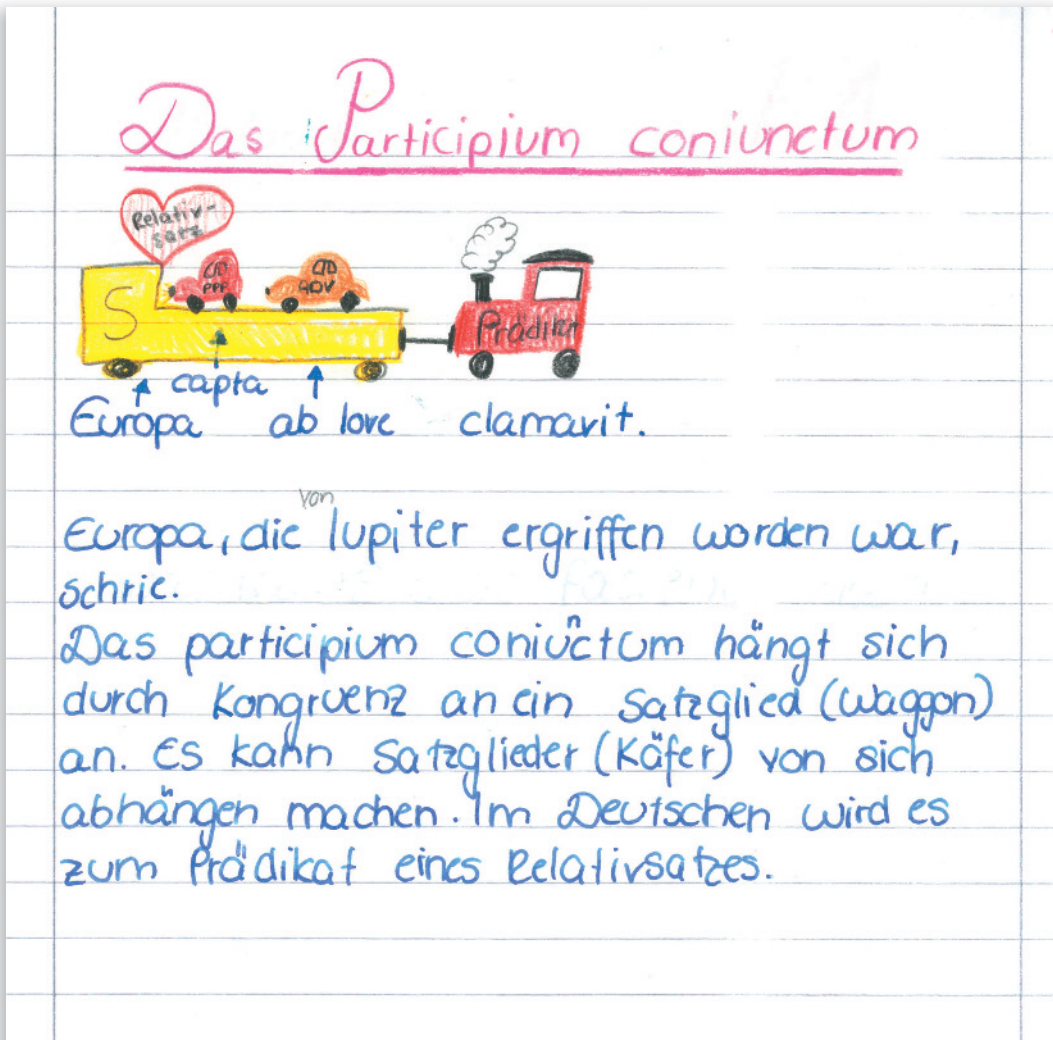 Das Participium coniunctum
Relativ-
satz
S
PPP
ADV
Prädikat
capta
Europa ab Iove clamavit.
von
Europa, die Iupiter ergriffen worden war,
schrie.
Das participium coniuctum hängt sich
n
durch Kongruenz an ein Satzglied (Waggon)
an. Es kann Satzglieder (Käfer) von sich
abhängen machen. Im Deutschen wird es
zum Prädikat eines Relativsatzes.